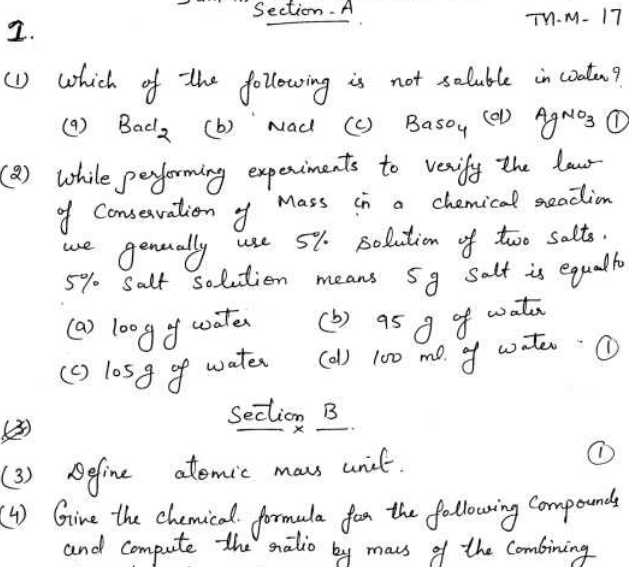 Section - A
1. TM-M- 17
(1) which of the following is not saluble in water?
(a) Bacl2 (b) Nacl (c) Baso4 (d) AgNO3 ①
(2) While performing experiments to verify the law
of Conservation of Mass in a chemical reaction
we generally use 5% solution of two salts.
5% salt solution means 5g salt is equal to
(a) 100g of water (b) 95 g of water
(c) 105g of water (d) 100 ml. of water. ①
Section B
(3) Define atomic mass unit. ①
(4) Give the chemical formula for the following compounds
and compute the ratio by mass of the combining